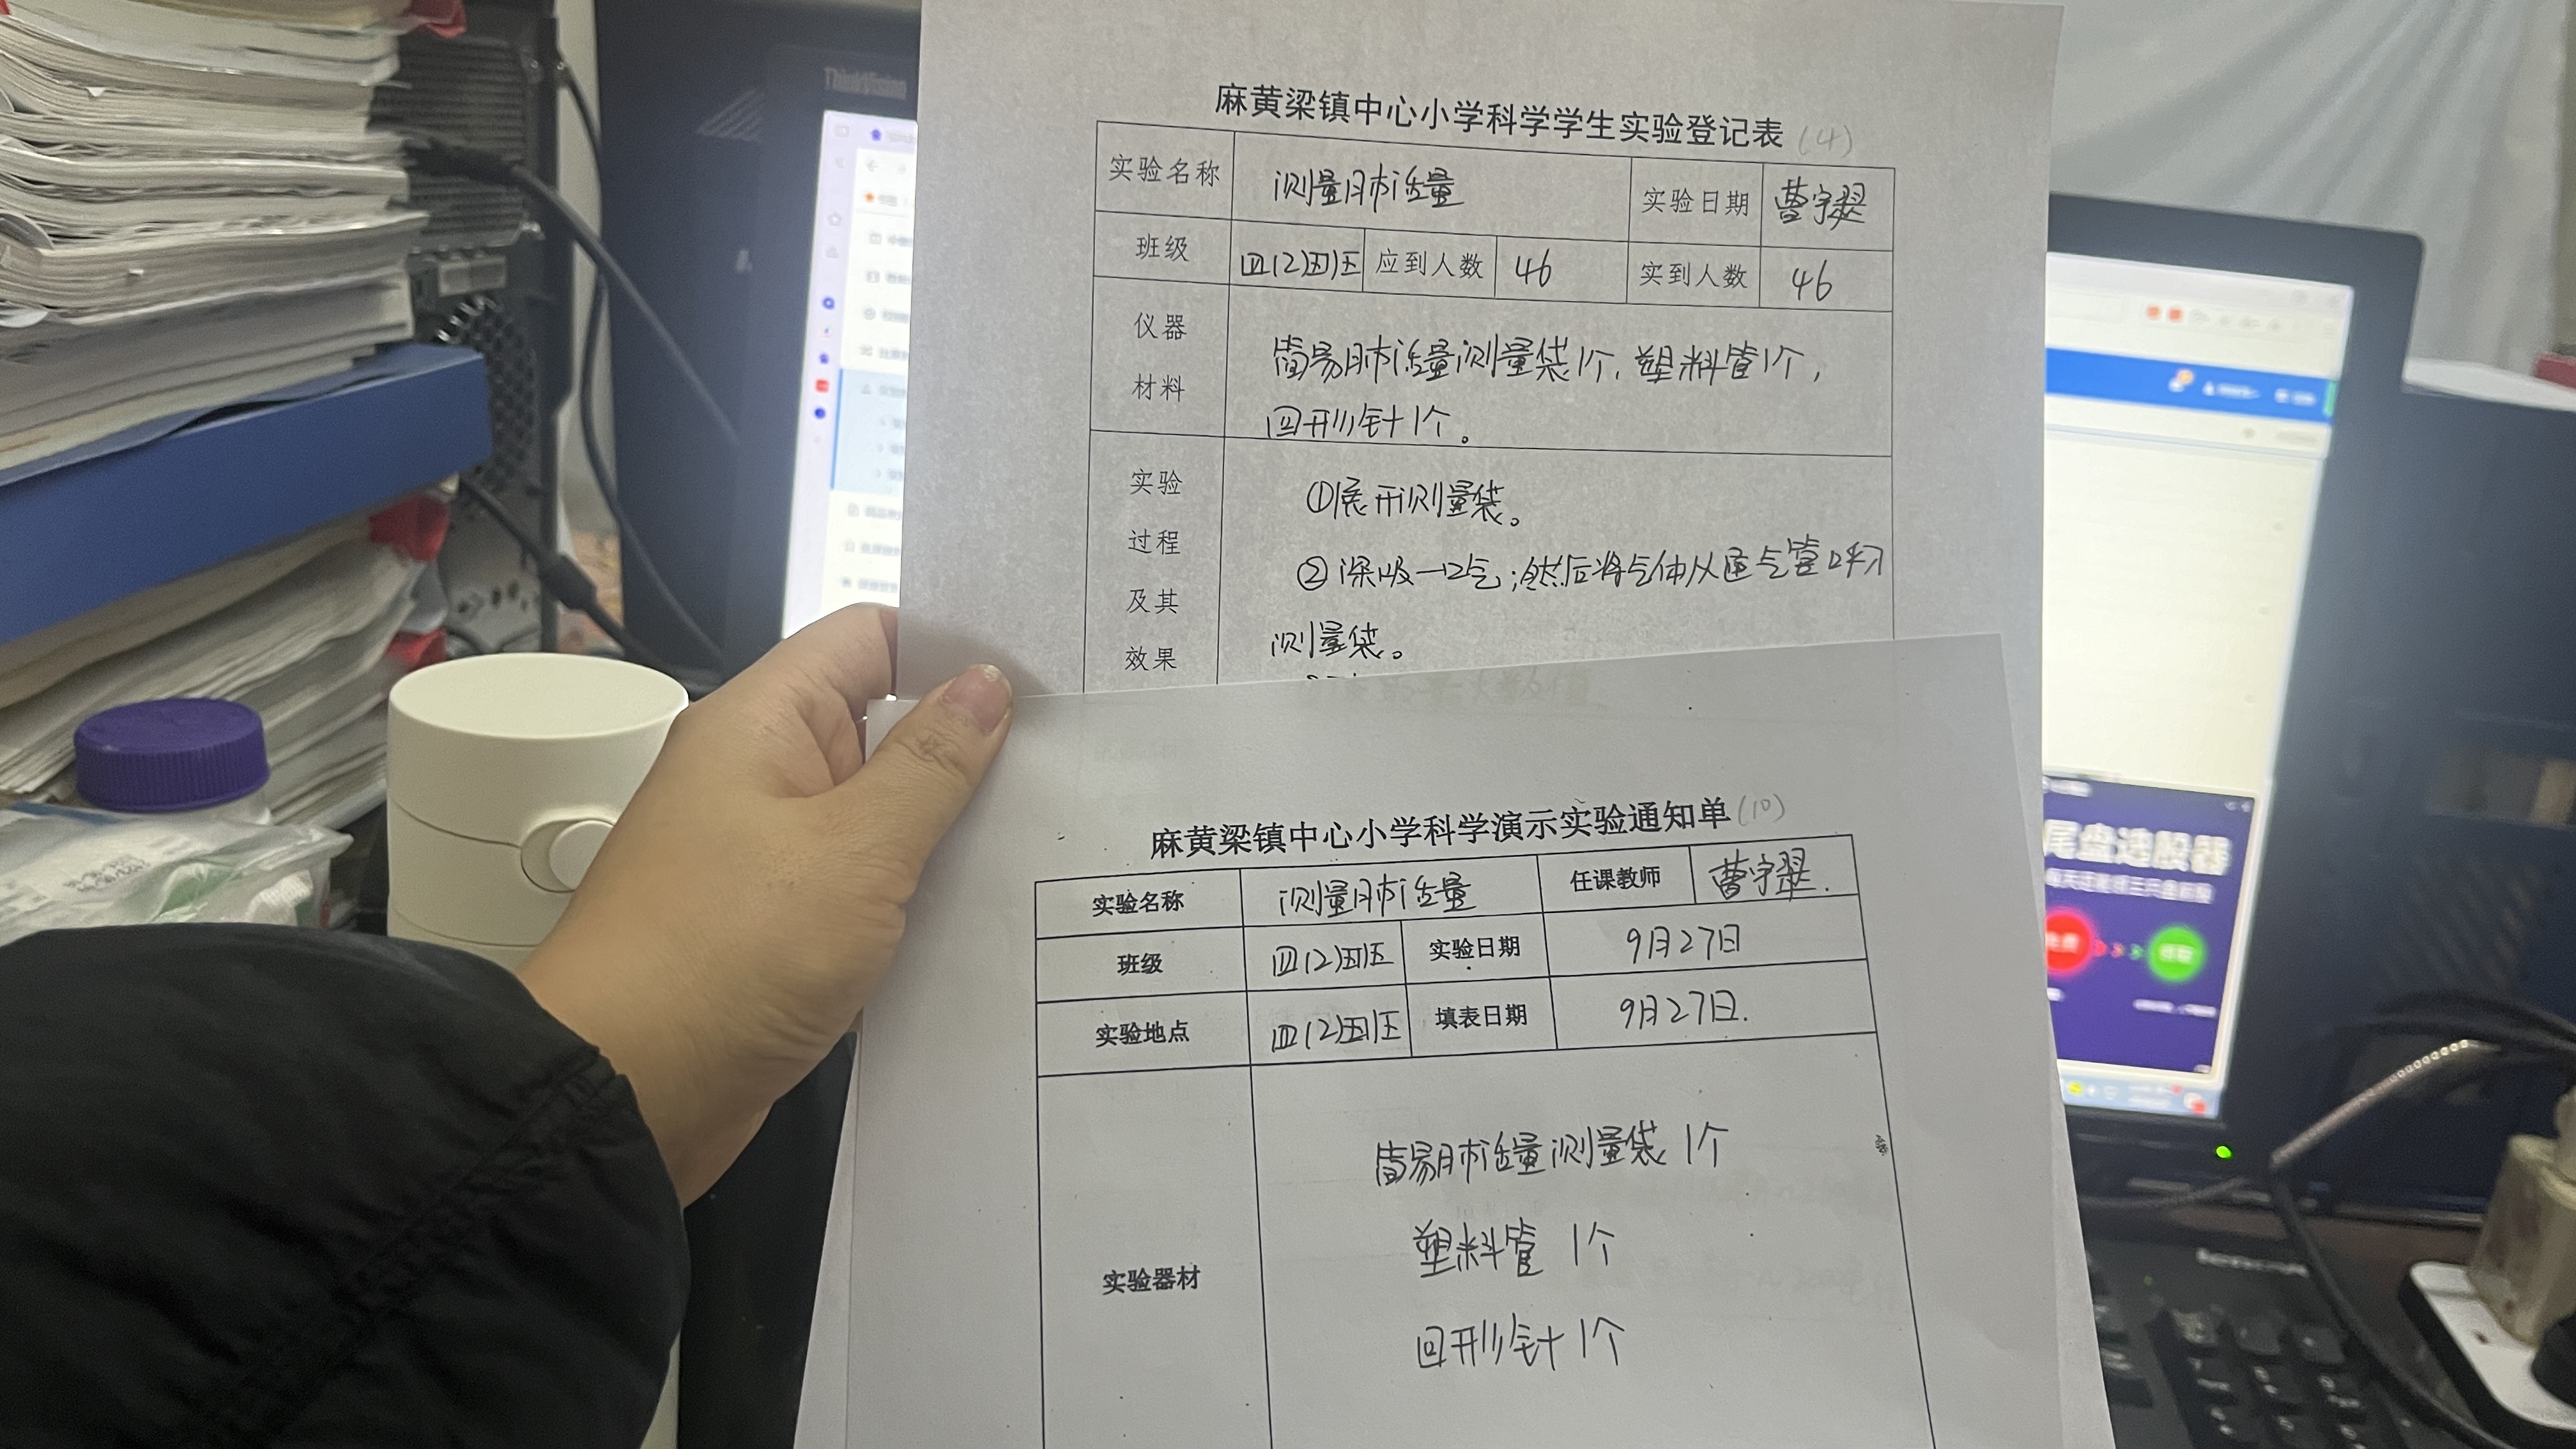 ThinkVision
麻黄梁镇中心小学科学学生实验登记表 (4)
实验名称 测量肺活量 实验日期 曹宇翠
班级 四(2)班 应到人数 46 实到人数 46
仪器材料 简易肺活量测量袋1个,塑料管1个,
回形针1个。
实验过程及其效果 ①展开测量袋。
②深吸一口气;然后将气体从通气管口呼入
测量袋。
麻黄梁镇中心小学科学演示实验通知单 (10)
实验名称 测量肺活量 任课教师 曹宇翠.
班级 四(2)班 实验日期 9月27日
实验地点 四(2)班 填表日期 9月27日.
实验器材 简易肺活量测量袋 1个
塑料管 1个
回形针 1个
尾盘选股器